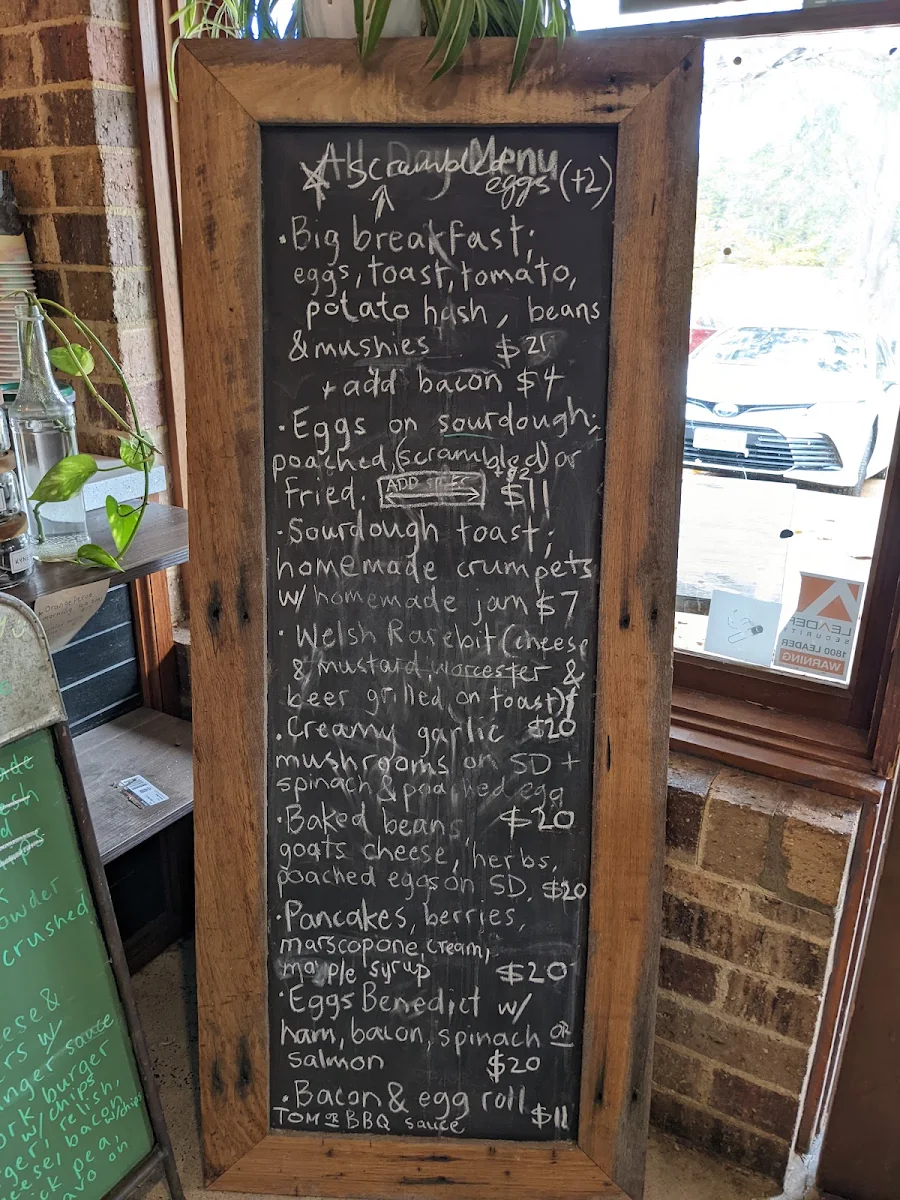 All Day Menu
scrambled
eggs (+2)
·Big breakfast;
eggs, toast, tomato,
potato hash, beans
& mushies $21
+ add bacon $4
·Eggs on sourdough;
poached, (scrambled) or
+$2
Fried. ADD $11
·Sourdough toast;
homemade crumpets
w/ homemade jam $7
·Welsh Rarebit (cheese
& mustard, worcester &
beer grilled on toast)
·Creamy garlic $20
mushrooms on SD +
spinach & poached egg
·Baked beans $20
goats cheese, herbs,
poached eggs on SD. $20
·Pancakes, berries,
marscopone, cream,
maple syrup $20
·Eggs Benedict w/
ham, bacon, spinach OR
salmon $20
·Bacon & egg roll
TOM OR BBQ sauce $11
LEADER
SECURITY
1800 LEADER
WARNING
owder
crushed
eese &
rs w/
nger sauce
ork burger
w/ chips
ger, relish,
eese, bacon w/chips
ck pea
avo on